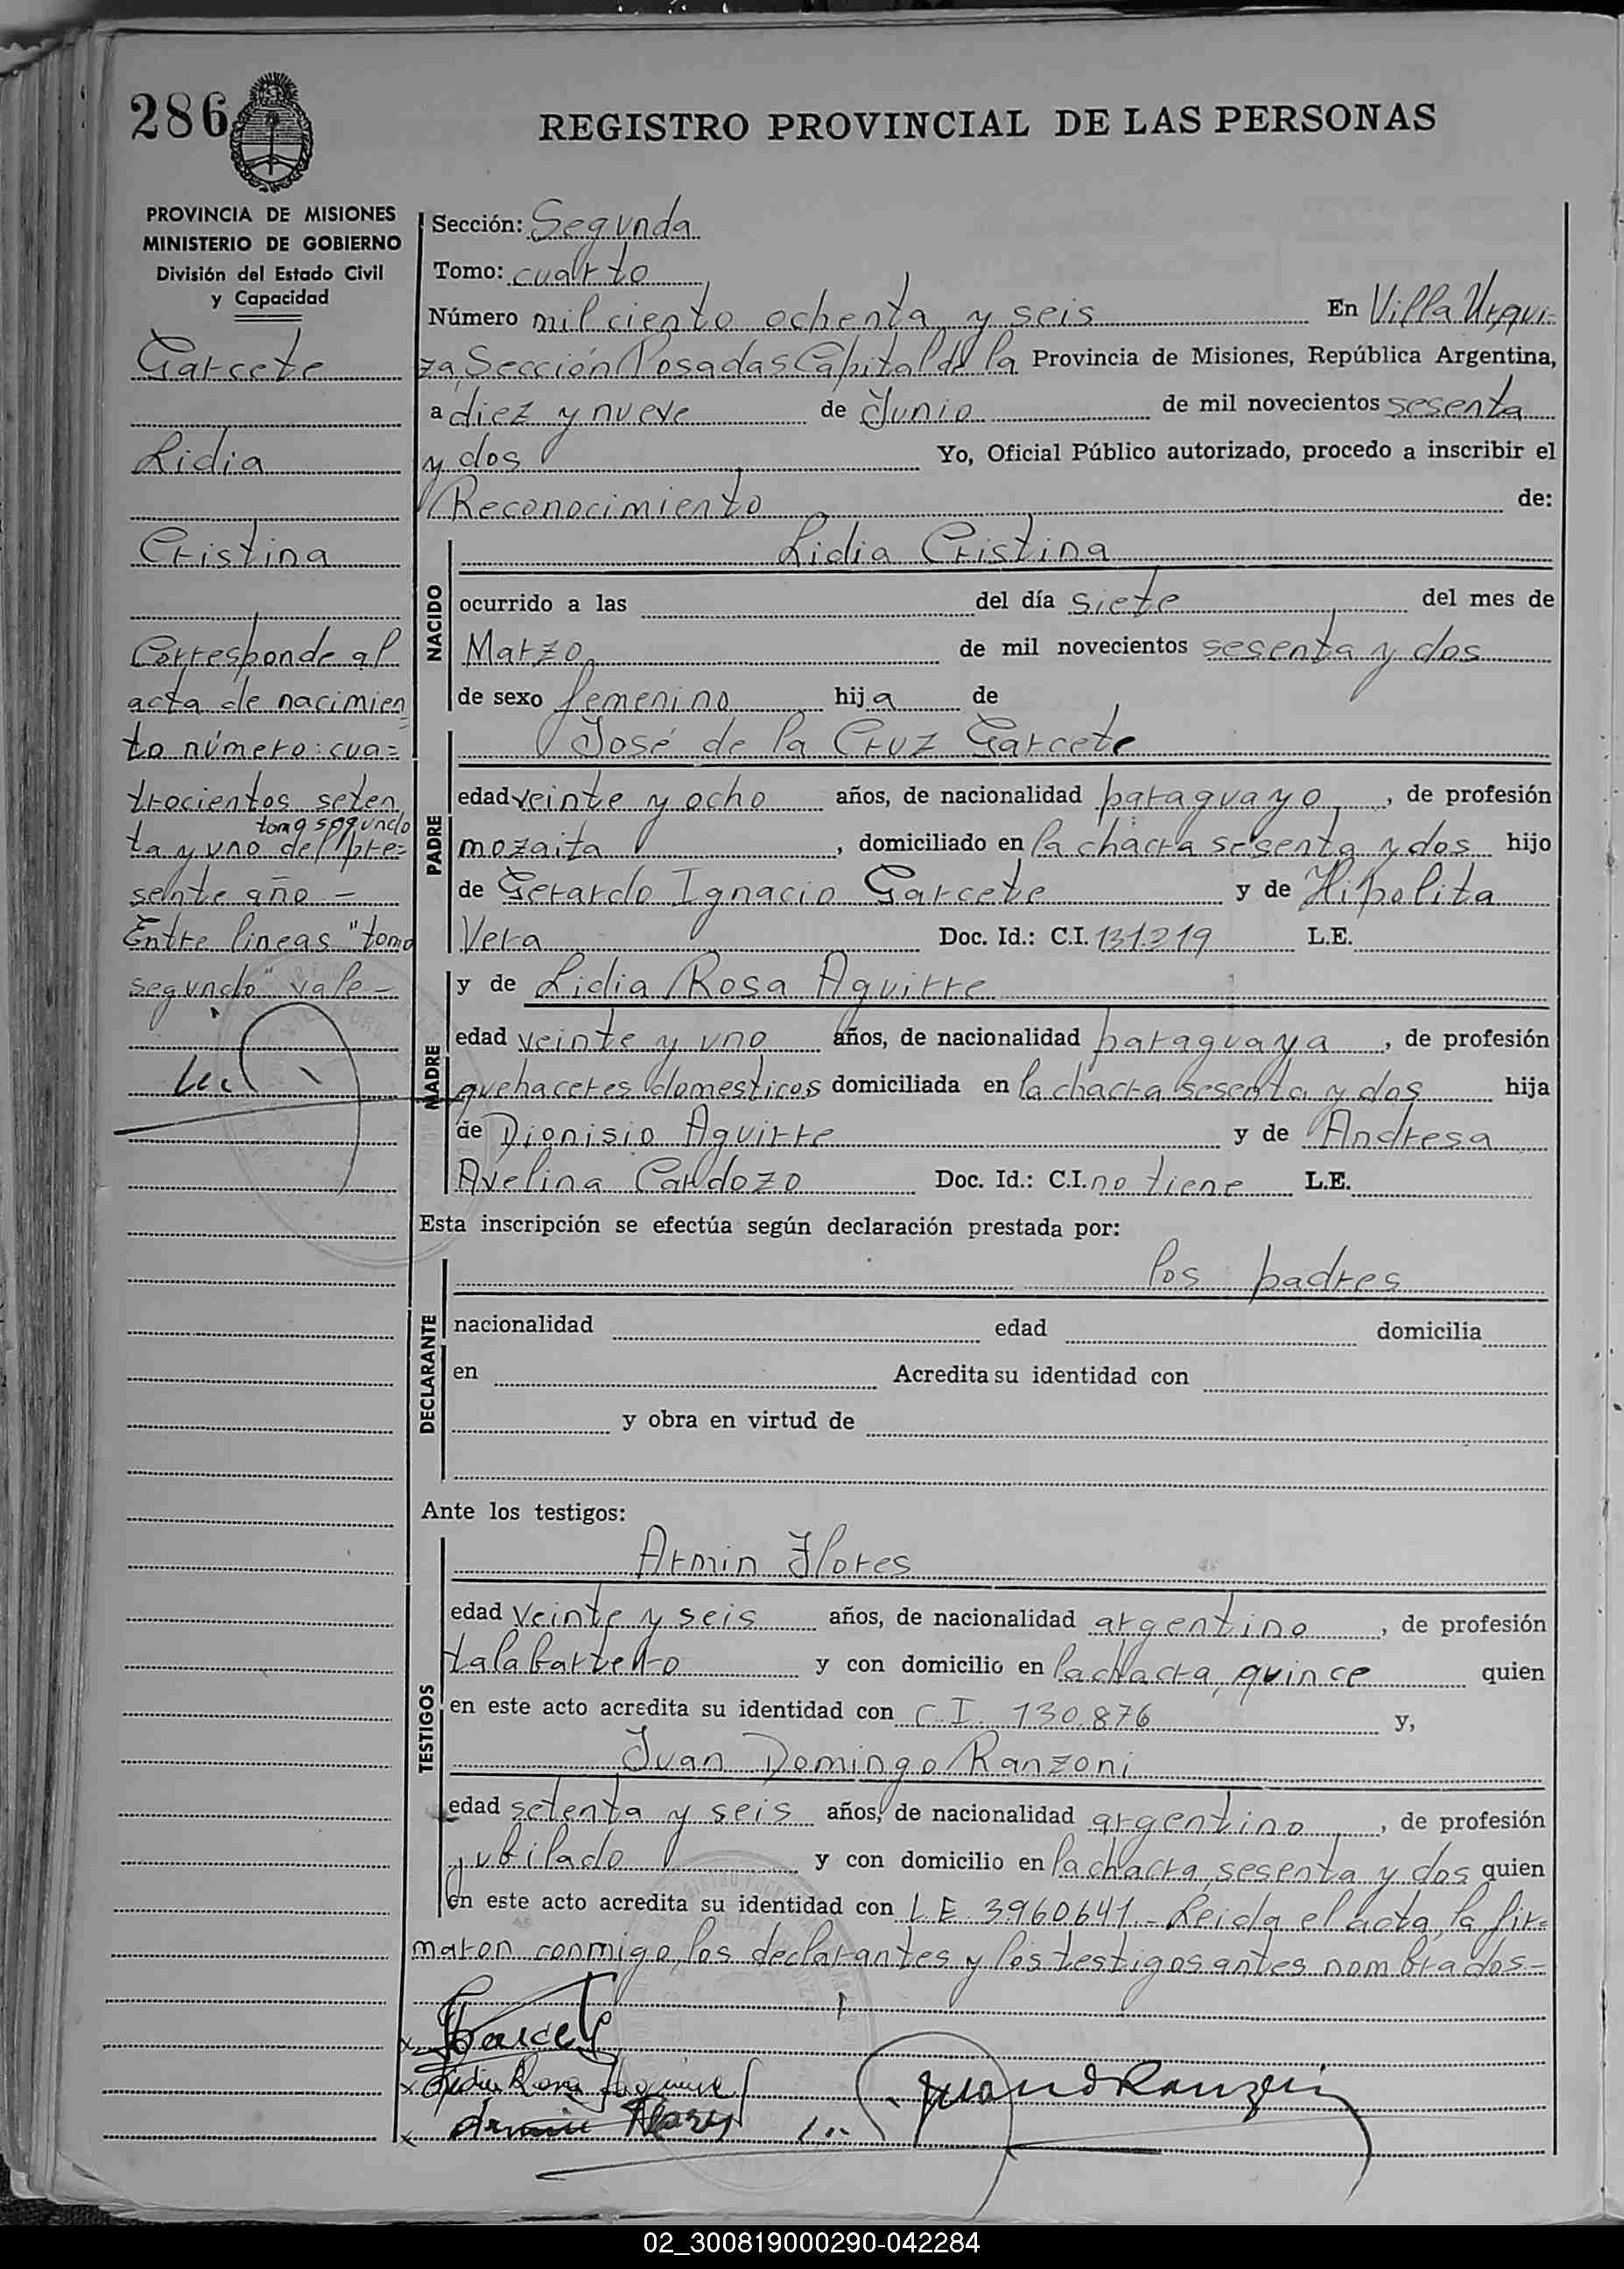 286
REGISTRO PROVINCIAL DE LAS PERSONAS
PROVINCIA DE MISIONES
MINISTERIO DE GOBIERNO
División del Estado Civil
y Capacidad
Garcete
Lidia
Cristina
Corresponde al
acta de nacimien
to número: cua=
trocientos seten
tomo segundo
ta y uno del pre=
sente año -
Entre lineas "tomo
segundo" vale -
Sección: Segunda
Tomo: cuarto
Número mil ciento ochenta y seis En Villa Urqui-
za, Sección Posadas Capital de la Provincia de Misiones, República Argentina,
a diez y nueve de Junio de mil novecientos sesenta
y dos Yo, Oficial Público autorizado, procedo a inscribir el
Reconocimiento de:
NACIDO
Lidia Cristina
ocurrido a las del día siete del mes de
Marzo de mil novecientos sesenta y dos
de sexo femenino hija de
PADRE
José de la Cruz Garcete
edad veinte y ocho años, de nacionalidad paraguayo, de profesión
mozaita, domiciliado en la chacra sesenta y dos hijo
de Gerardo Ignacio Garcete y de Hipolita
Vera Doc. Id.: C.I. 131.219 L.E.
MADRE
y de Lidia Rosa Aguirre
edad veinte y uno años, de nacionalidad paraguaya, de profesión
quehaceres domesticos domiciliada en la chacra sesenta y dos hija
de Dionisio Aguirre y de Andresa
Avelina Cardozo Doc. Id.: C.I. no tiene L.E.
Esta inscripción se efectúa según declaración prestada por:
DECLARANTE
los padres
nacionalidad edad domicilia
en Acredita su identidad con
y obra en virtud de
Ante los testigos:
TESTIGOS
Armin Flores
edad veinte y seis años, de nacionalidad argentino, de profesión
talabartero y con domicilio en la chacra quince quien
en este acto acredita su identidad con C.I. 130.876 y,
Juan Domingo Ranzoni
edad setenta y seis años, de nacionalidad argentino, de profesión
jubilado y con domicilio en la chacra sesenta y dos quien
en este acto acredita su identidad con L.E. 3960641.- Leida el acta, la fir=
maron conmigo, los declarantes y los testigos antes nombrados.-
x Garcete
x Lidia Rosa Aguirre
x Armin Flores
Juan D Ranzoni
02_300819000290-042284